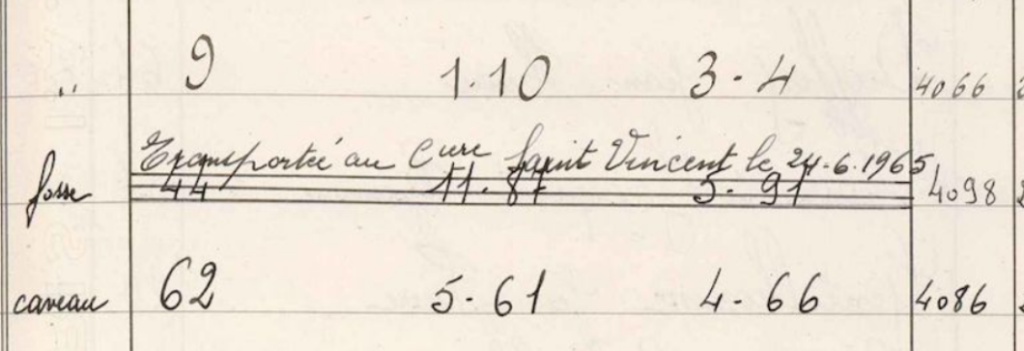 " 9 1.10 3-4 4066
Transportée au Cure Saint Vincent le 24-6.1965
fosse 44 11-87 5-91 4098
caveau 62 5-61 4-66 4086